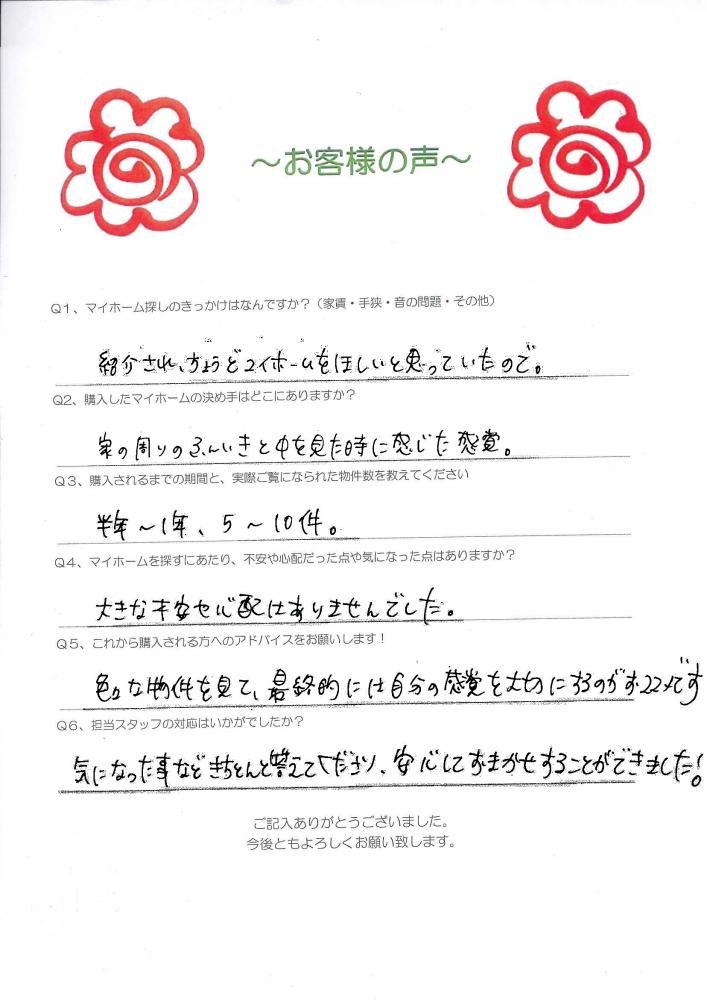 ～お客様の声～
Q1、マイホーム探しのきっかけはなんですか？（家賃・手狭・音の問題・その他）
紹介され、ちょうどマイホームをほしいと思っていたので。
Q2、購入したマイホームの決め手はどこにありますか？
家の周りのふんいきと中を見た時に感じた感覚。
Q3、購入されるまでの期間と、実際ご覧になられた物件数を教えてください
半年～1年、5～10件。
Q4、マイホームを探すにあたり、不安や心配だった点や気になった点はありますか？
大きな不安や心配はありませんでした。
Q5、これから購入される方へのアドバイスをお願いします！
色々な物件を見て、最終的には自分の感覚を大切にするのがオススメです
Q6、担当スタッフの対応はいかがでしたか？
気になった事などきちんと答えてくださり、安心しておまかせすることができました！
ご記入ありがとうございました。
今後ともよろしくお願い致します。